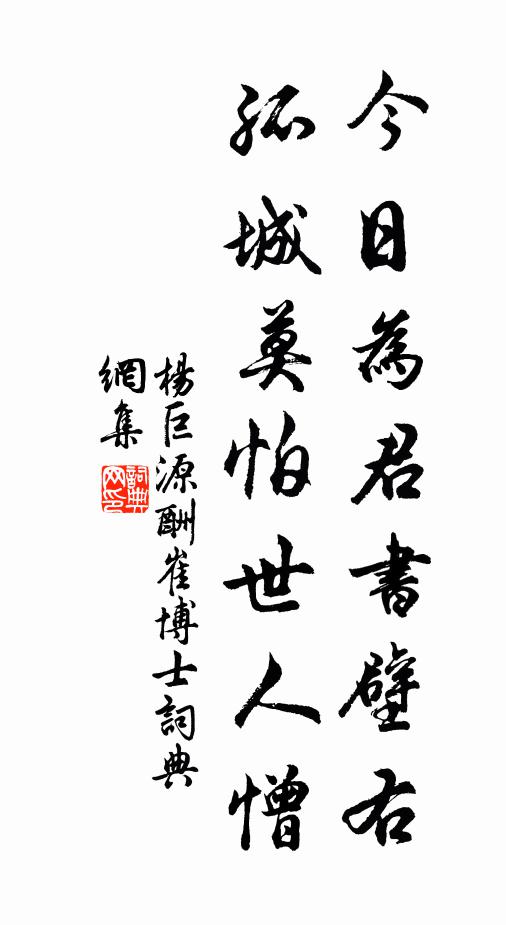 今日為君書壁右
孤城莫怕世人憎
楊巨源酬崔博士詞典
網集
詞典
网印